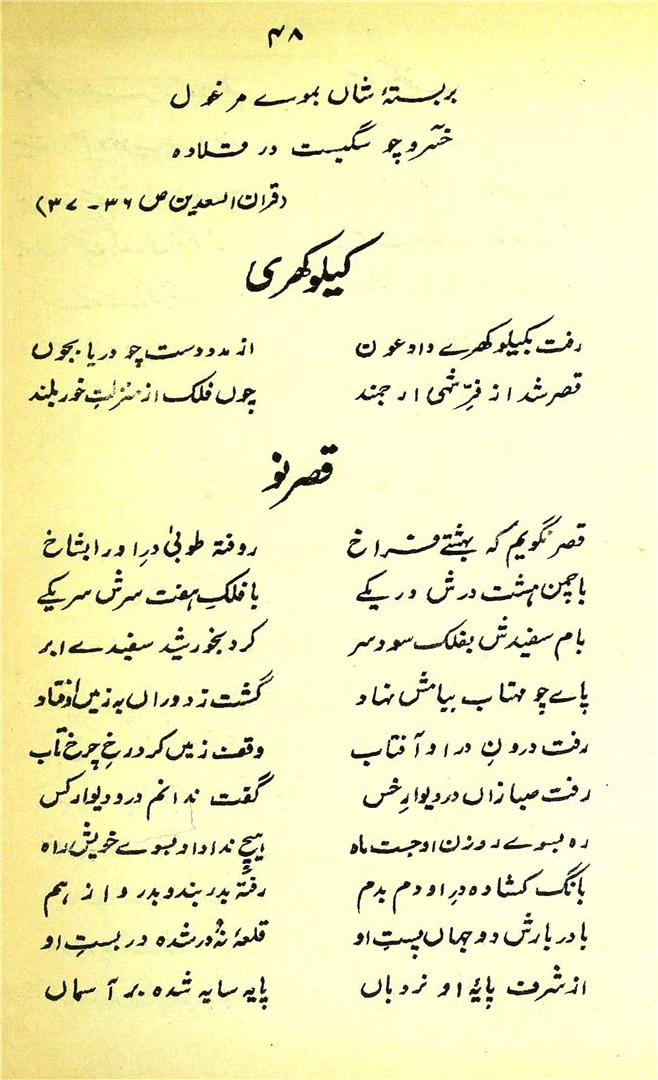 ۴۸
بربستۂ شاں بموے مرغول
خسرو چو سگیست در قلادہ
(قران السعدین ص ۳۶ - ۳۷)
کیلوکھری
رفت بکیلوکھرے داد عون از مدد دست چو دریا بجوں
قصر شد از فرِّ شہی ارجمند چوں فلک از منزلتِ خور بلند
قصرِ نو
قصر نگویم کہ بہشتے فراخ روفتہ طوبیٰ درِ او را بشاخ
باچمن ہشت درش در یکے با فلکِ ہفت سرش سر یکے
بام سفیدش بفلک سود سر کرد بخورشید سفیدے ابر
پاے چو مہتاب ببامش نہاد گشت ز دوراں بہ زمیں اوفتاد
رفت درونِ درِ او آفتاب وقفِ زمیں کرد رخِ چرخ تاب
رفت صبا زاں در دیوارِ خس گفت ندانم در و دیوار کس
رہ بسوے روزنِ او جست ماہ ہیچ نداد او بسوے خویش راہ
بانگ کشادہ درِ او دم بدم رفتہ بدربند و بدرواز ہم
با در بارش دو جہاں پستِ او قلعۂ نُہ در شدہ دربستِ او
از شرف پایۂ او نردباں پایہ سایہ شدہ بر آسماں